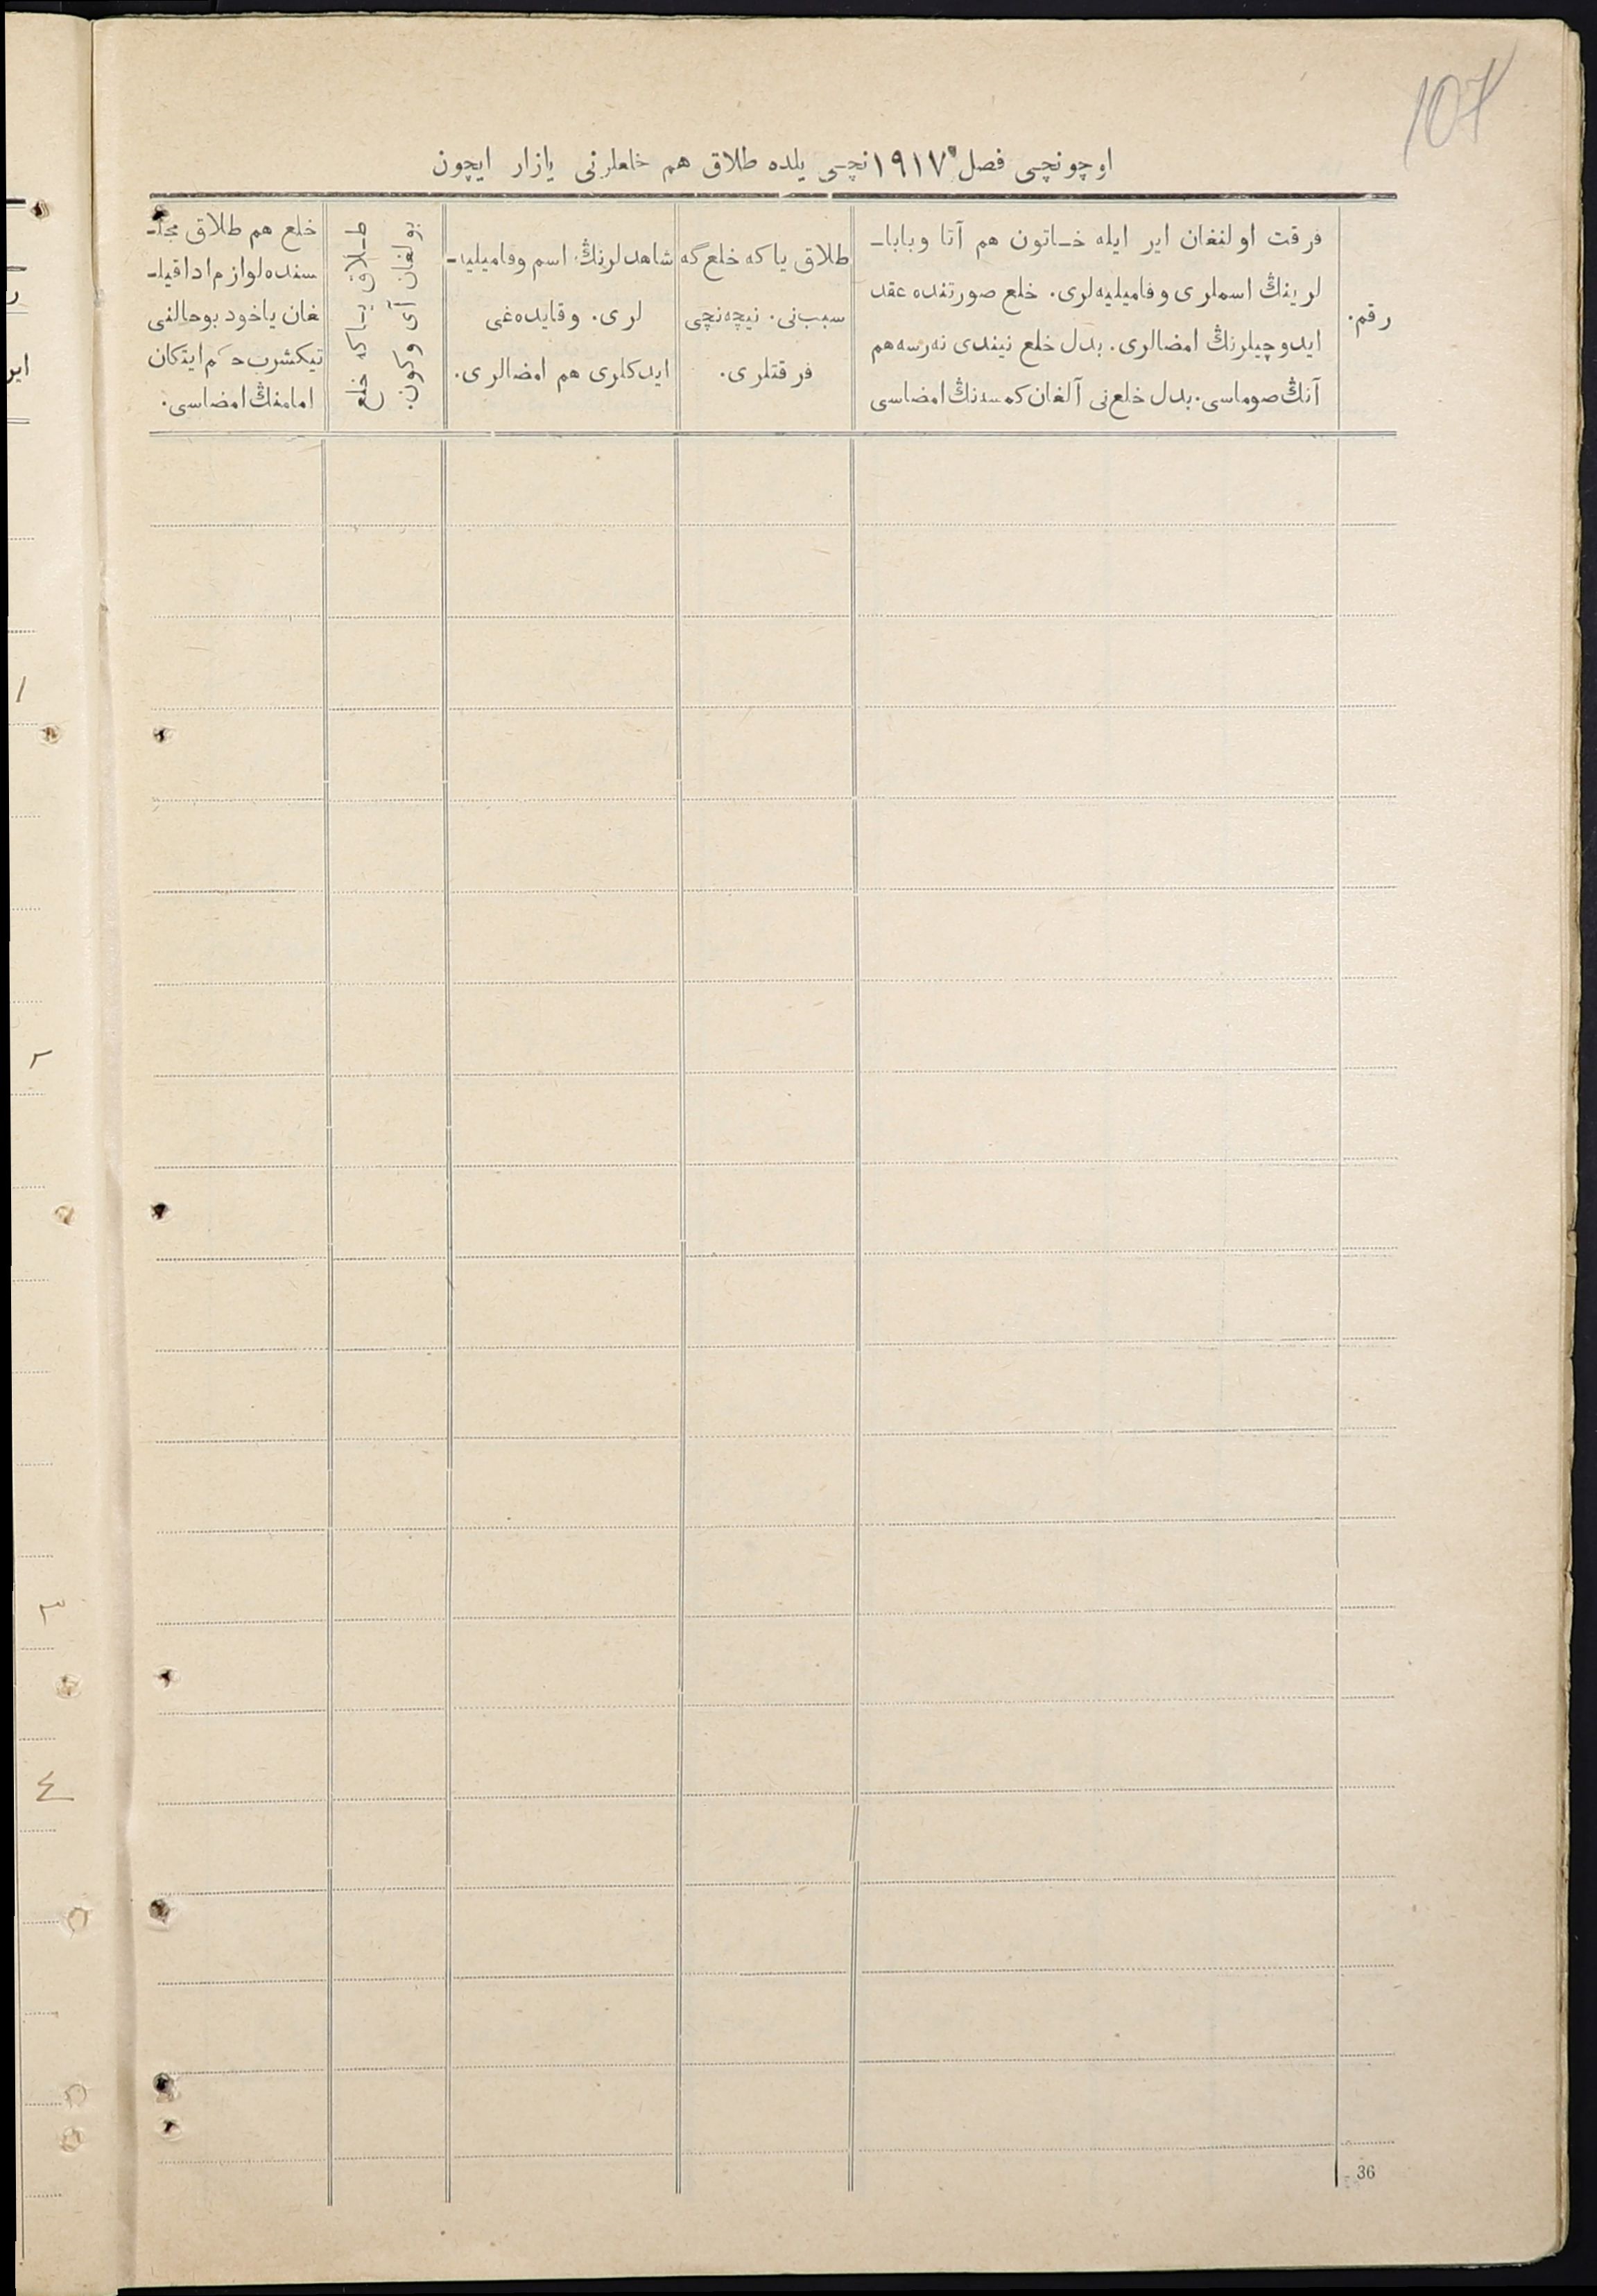 107
اوچونچی فصل ١٩١٧ نچی یلده طلاق هم خلعلرنی یازار ایچون
رقم.
فرقت اولنغان ایر ایله خاتون هم آتا وبابا-
لرینڭ اسملری وفامیلیه‌لری. خلع صورتنده عقد
ایدوچیلرنڭ امضالری. بدل خلع نیندی نه‌رسه هم
آنڭ صوماسی. بدل خلع‌نی آلغان کمسه‌نڭ امضاسی
طلاق یا که خلع گه
سبب‌نی. نیچه‌نچی
فرقتلری.
شاهدلرنڭ اسم وفامیلیه-
لری. وقایده‌غی
ایدکلری هم امضالری.
طلاق یا که خلع
بولغان آی وکون.
خلع هم طلاق مجلـ
سنده‌لوازم ادا قیلـ
غان یاخود بوحالنی
تیکشرب حکم ایتکان
امامنڭ امضاسی.
36
ایر
١
٢
٣
٤